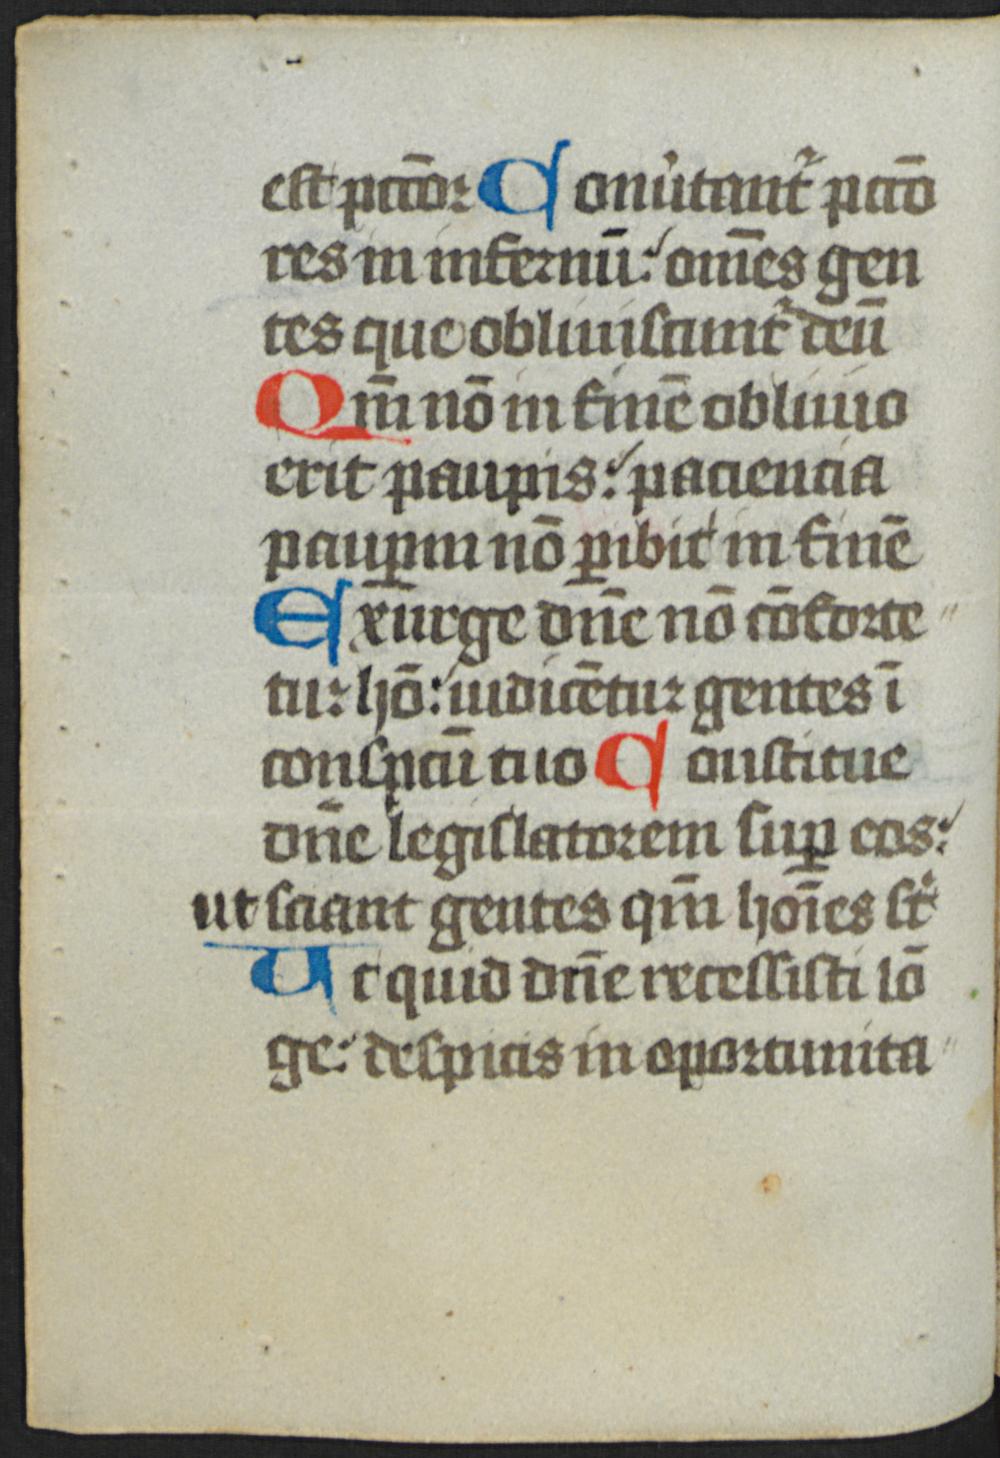 est pctōr Conũtantᷣ pctō
res in infernū: om̄es gen
tes que obliuiscuntᷣ deū
Qm̄ nō in finē obliuio
erit paupis: paciencia
pauꝑum nō ꝑibit in finē
Exurge dn̄e nō cōforte〃
tur hō: iudicētur gentes ī
conspctū tuo Constitue
dn̄e legislatorem suꝑ eos:
ut sciant gentes qm̄ hoīes st̄
Ut quid dn̄e recessisti lō
ge: despicis in oportunita〃